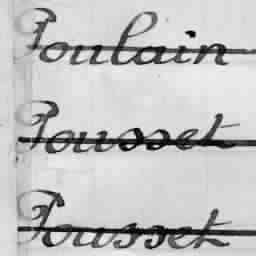 Poulain
Pousset
Pousset